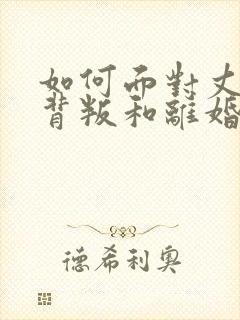 如何面對丈
背叛和離婚
德希利奧